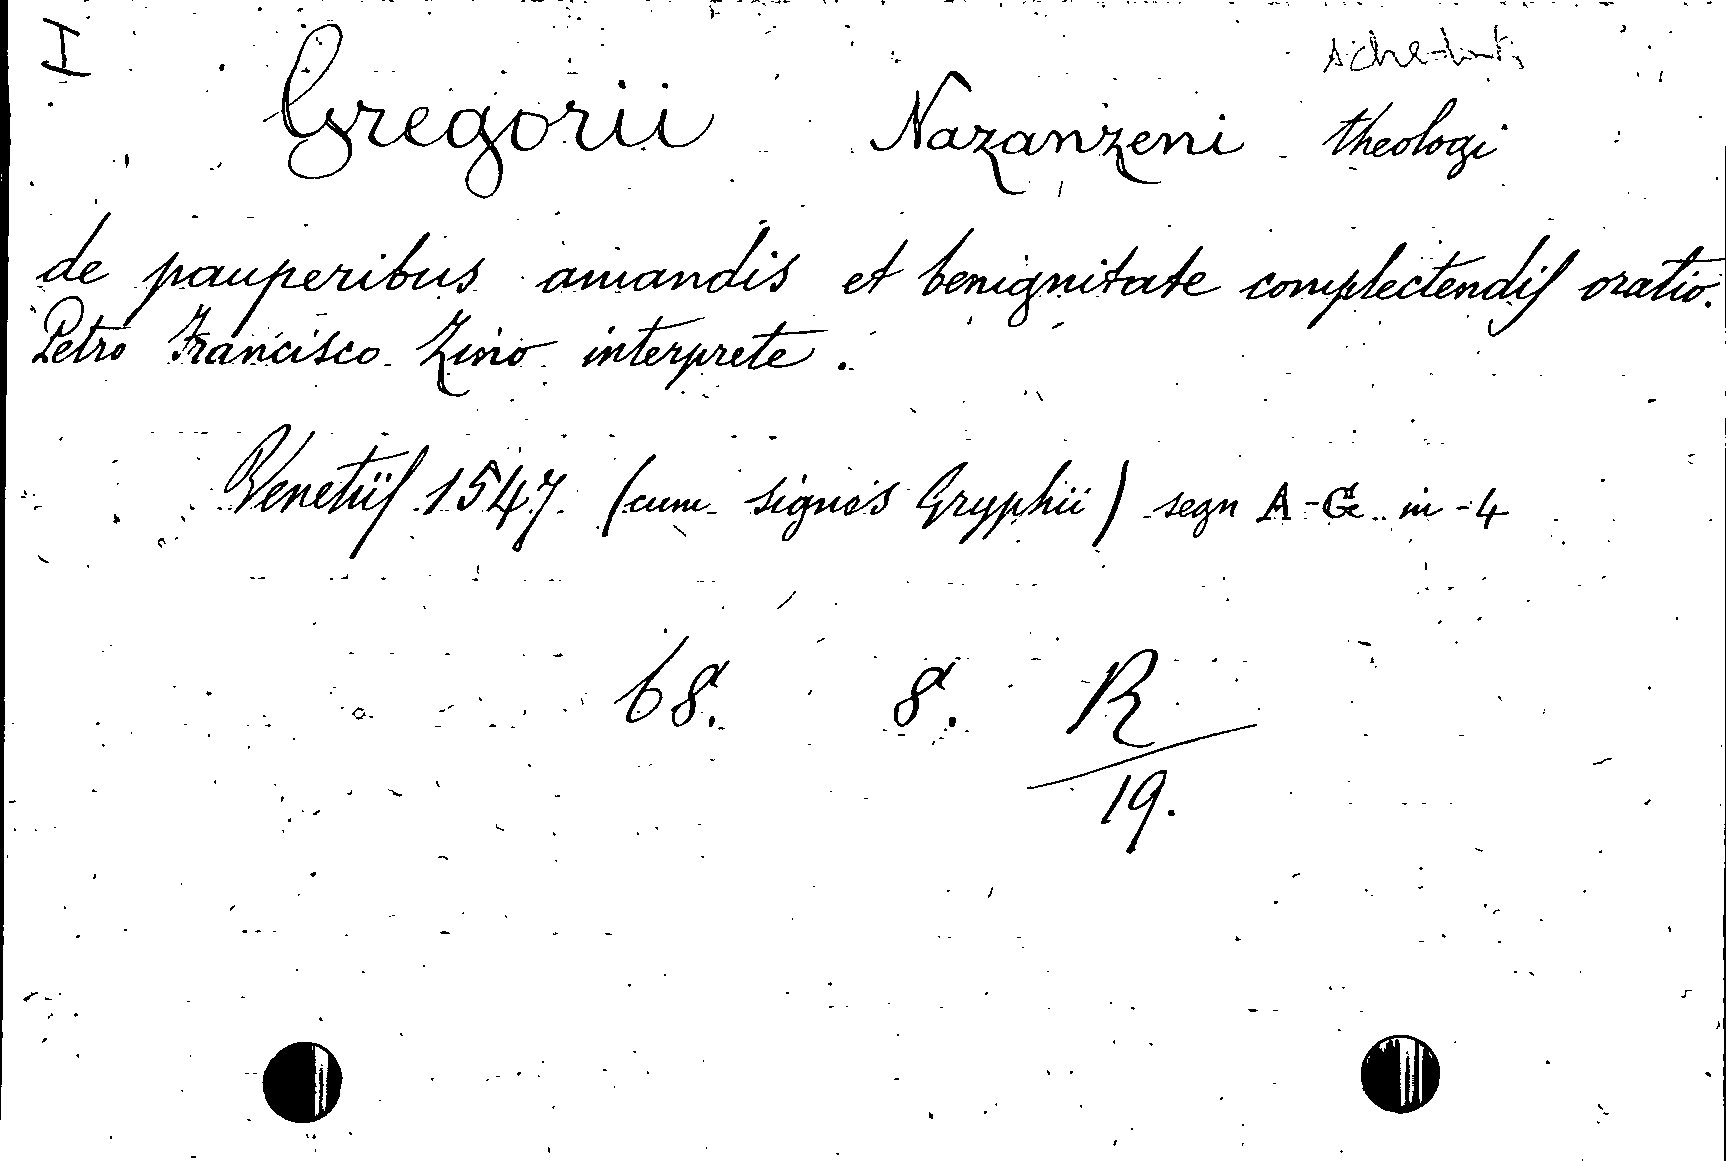 I
Gregorii Nazanzeni theologi
de pauperibus amandis et benignitate complectendis oratio.
Petro Francisco Zino interprete.
Venetiis 1547. (cum signis Gryphii) segn A-G in-4
68. 8. R
19.